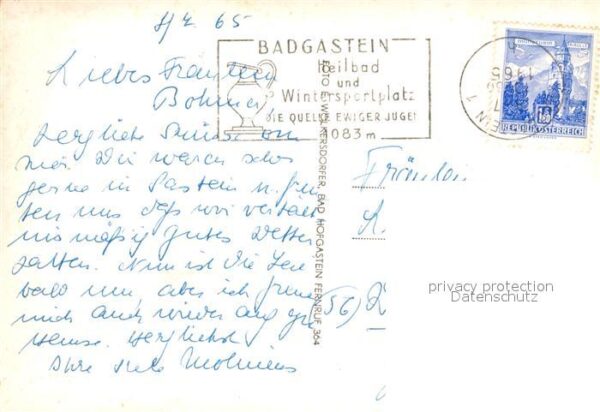 65
Liebes Fräulein
Böhmer!
Herzliche Grüsse von
mir. Wir waren sehr
gerne in Gastein u. freu
ten uns daß wir verhält
nismäßig gutes Wetter
hatten. Nun ist die Zeit
bald um, aber ich freue
mich auch wieder auf zu
Hause. Herzlichst
Ihre
BADGASTEIN
Heilbad
und
Wintersportplatz
DIE QUELLE EWIGER JUGEND
1083 m
REPUBLIK ÖSTERREICH
FOTO E. WINKERSDORFER, BAD HOFGASTEIN FERNRUF 364
Fräulein
(56)
privacy protection
Datenschutz